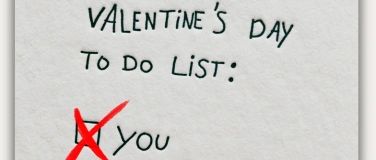 VALENTINE'S DAY
TO DO LIST:
YOU